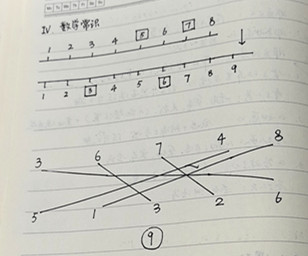 IV 数学常识
1 2 3 4 5 6 7 8
1 2 3 4 5 6 7 8 9
3 6 7 4 8
5 1 3 2 6
9